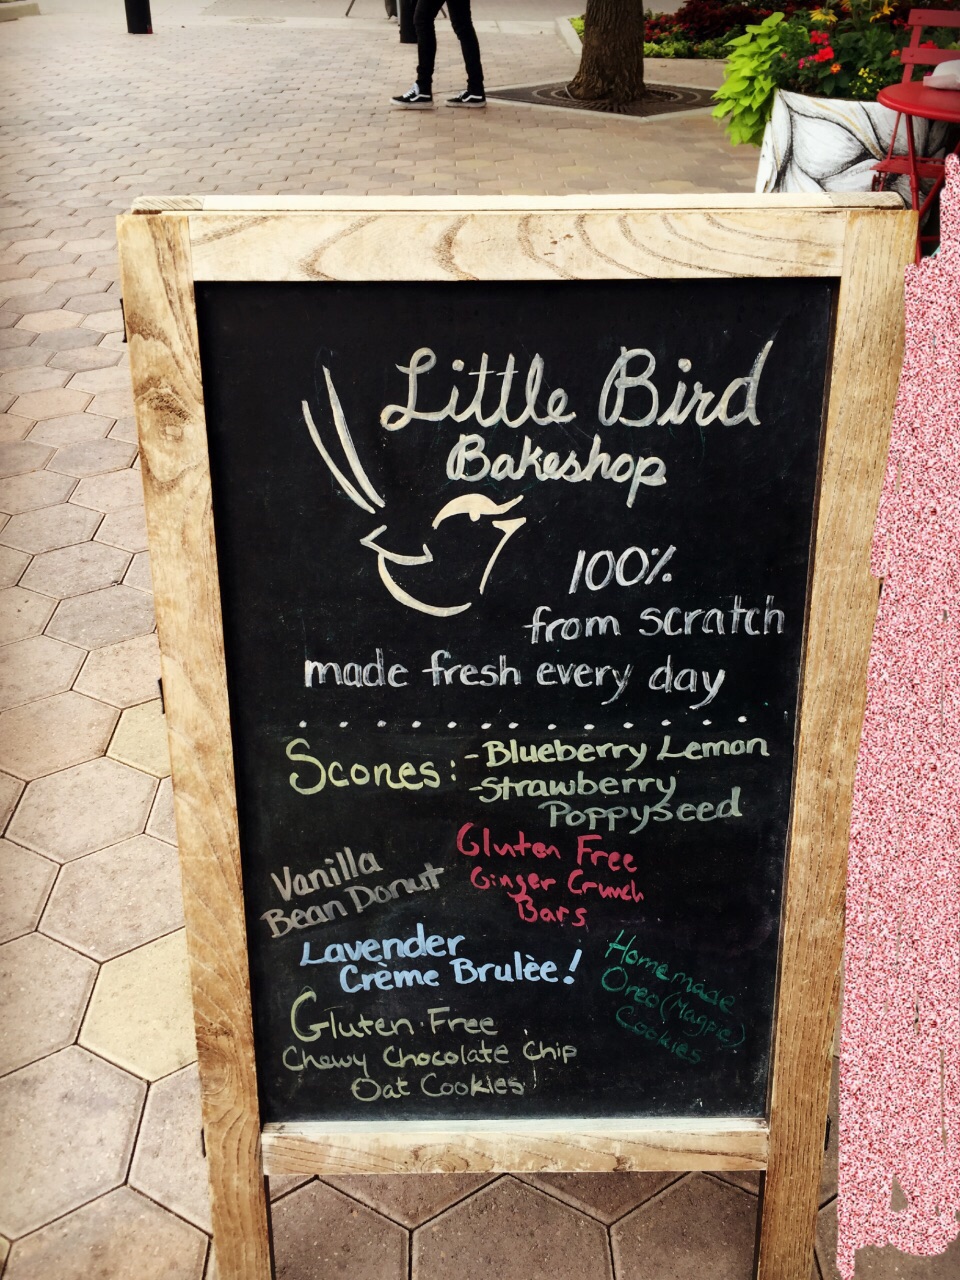 Little Bird
Bakeshop
100%
from scratch
made fresh every day
Scones: -Blueberry Lemon
-Strawberry
Poppyseed
Vanilla
Bean Donut
Gluten Free
Ginger Crunch
Bars
Lavender
Crème Brulèe!
Homemade
Oreo (Magpie)
Cookies
Gluten-Free
Chewy Chocolate Chip
Oat Cookies!